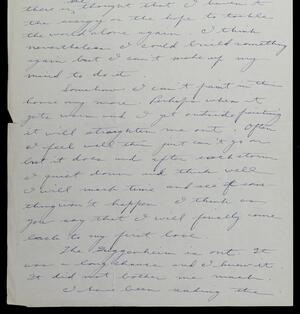 there is thought that I haven't
the energy or the hope to tackle
the world alone again. I think
nevertheless I could build something
again but I can't make up my
mind to do it.
Somehow I can't paint in the
house any more. Perhaps when it
gets warm and I get outside painting
it will straighten me out. Often
I feel well this just can't go on
but it does and after each storm
I quiet down and think well
I will mark time and see if some
thing won't happen. I think as
you say that I will finally come
back to my first love.
The Guggenheim is out. It
was a long chance and I knew it.
It did not bother me much.
I have been reading the